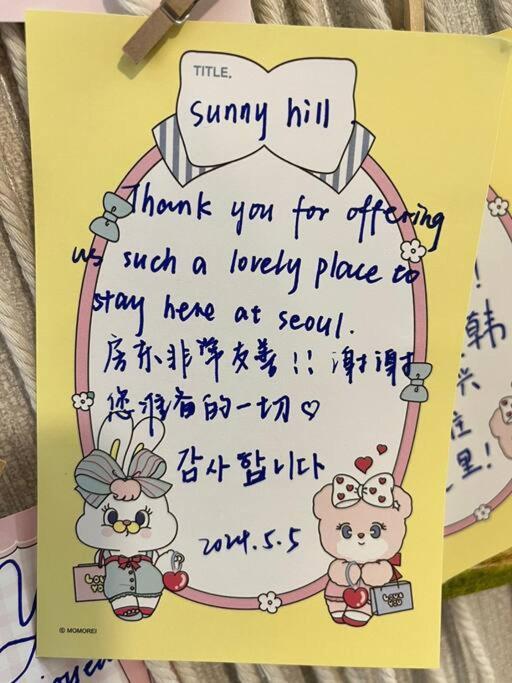 TITLE.
sunny hill
Thank you for offering
us such a lovely place to
stay here at seoul.
房东非常友善!! 谢谢
您准备的一切♡
감사합니다
2024.5.5
LOVE YOU
LOVE YOU
© MOMOREI
!
韩
住
里!